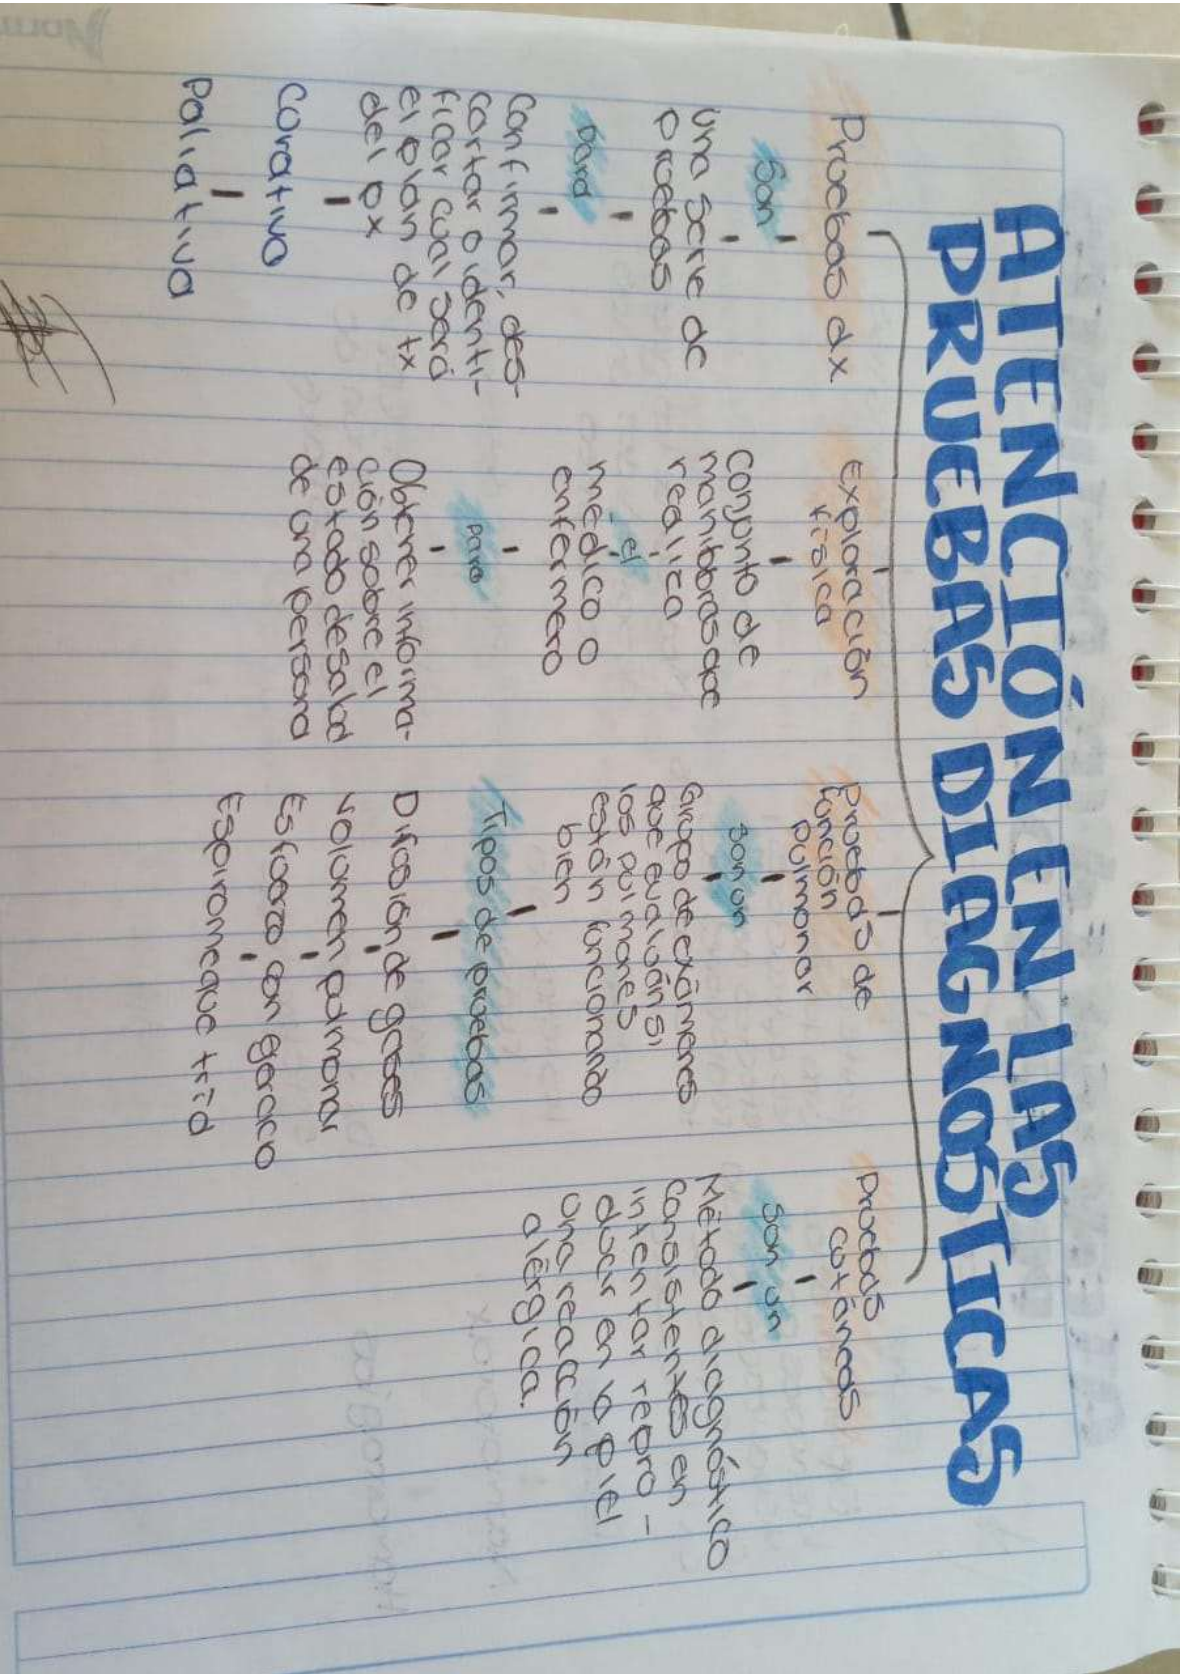 ATENCIÓN EN LAS
PRUEBAS DIAGNOSTICAS
Pruebas dx
Son
Una serie de
pruebas
Para
Confirmar, des-
cartar o identi-
ficar cual será
el plan de tx
del px
Curativo
Paliativa
Exploración
física
Conjunto de
maniobras que
realiza
el
médico o
enfermero
Para
Obtener informa-
ción sobre el
estado de salud
de una persona
Pruebas de
función
pulmonar
son un
Grupo de exámenes
que evalúan si
los pulmones
están funcionando
bien
Tipos de pruebas
Difusión de gases
Volumen pulmonar
Esfuerzo con
Pruebas
cutáneas
Son un
Método diagnóstico
Consistentes en
intentar repro-
ducir en la piel
una reacción
alérgica.